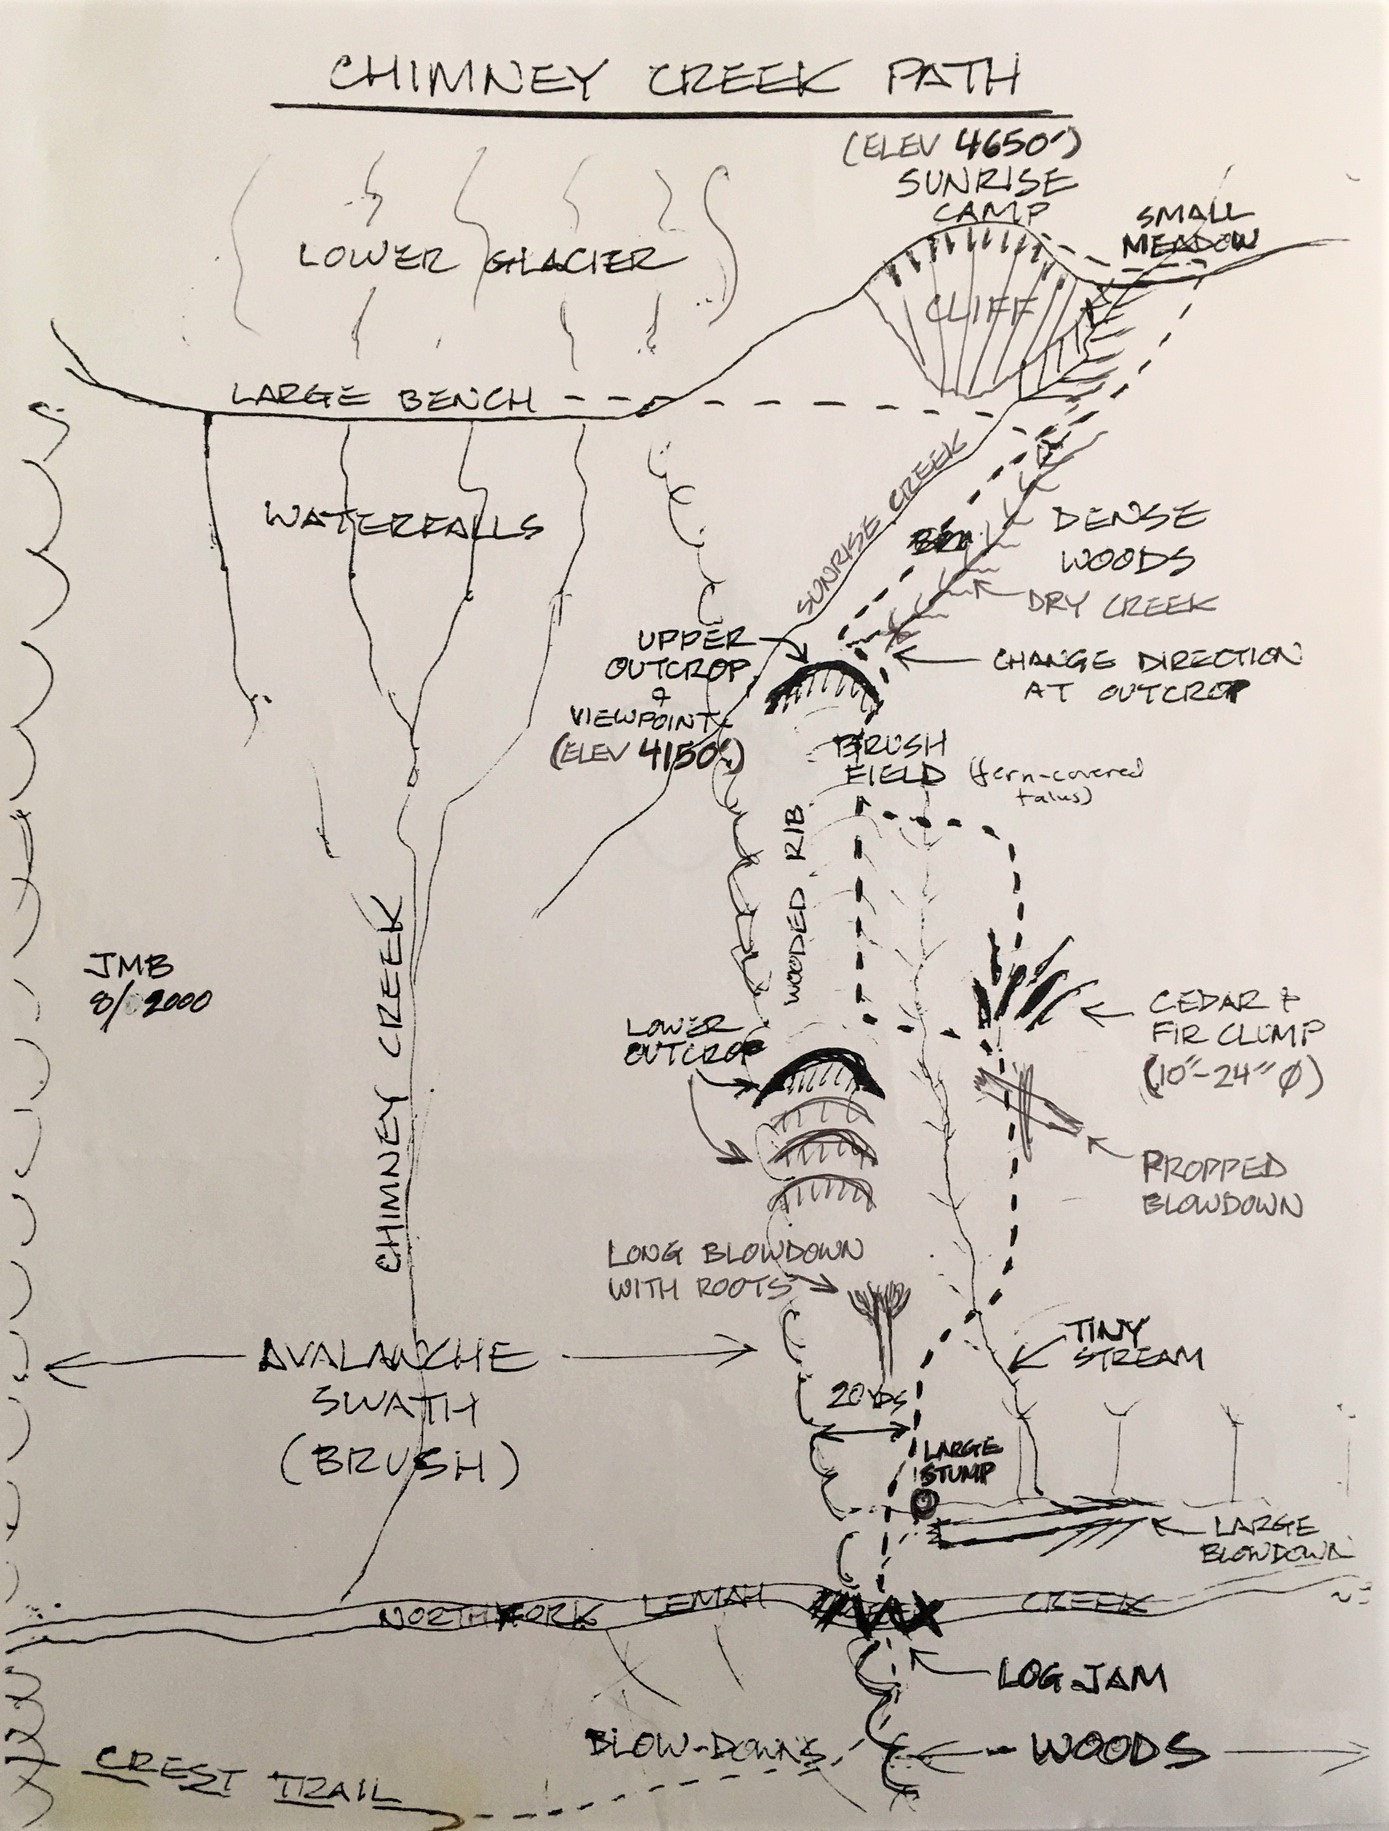 CHIMNEY CREEK PATH
(ELEV 4650')
SUNRISE
CAMP
SMALL
MEADOW
LOWER GLACIER
CLIFF
LARGE BENCH
WATERFALLS
SUNRISE CREEK
DENSE
WOODS
DRY CREEK
UPPER
OUTCROP
&
VIEWPOINT
(ELEV 4150')
CHANGE DIRECTION
AT OUTCROP
BRUSH
FIELD
(fern-covered
talus)
WOODED RIB
CHIMNEY CREEK
JMB
8/2000
LOWER
OUTCROP
CEDAR +
FIR CLUMP
(10"-24" Ø)
PROPPED
BLOWDOWN
LONG BLOWDOWN
WITH ROOTS
TINY
STREAM
AVALANCHE
SWATH
(BRUSH)
20 YDS
LARGE
STUMP
LARGE
BLOWDOWN
NORTH FORK LEMAH CREEK
LOG JAM
BLOW-DOWNS
WOODS
CREST TRAIL